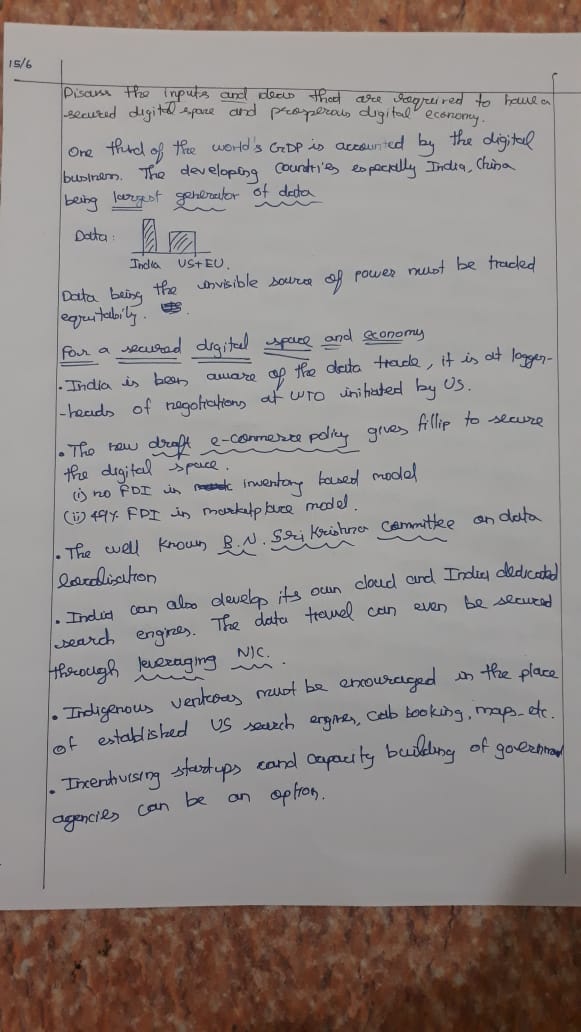 15/6
Discuss the inputs and ideas that are required to have a
secured digital space and prosperous digital economy.
One third of the world's GDP is accounted by the digital
business. The developing countries especially India, China
being largest generator of data
Data:
India US+EU.
Data being the invisible source of power must be traded
equitability.
For a secured digital space and economy
• India is been aware of the data trade, it is at logger-
-heads of negotiations at WTO initiated by US.
• The new draft e-commerce policy gives fillip to secure
the digital space.
(i) no FDI in inventory based model
(ii) 49% FDI in marketplace model.
• The well known B.N. Sri Krishna Committee on data
localisation
• India can also develop its own cloud and India dedicated
search engines. The data travel can even be secured
through leveraging NIC.
• Indigenous ventures must be encouraged in the place
of established US search engines, cab booking, maps etc.
• Incentivising startups and capacity building of government
agencies can be an option.